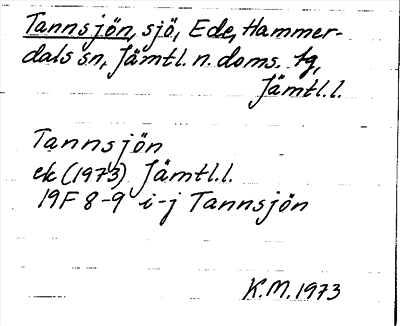 Tannsjön, sjö, Ede, Hammer-
dals sn, Jämtl. n. doms. fg,
Jämtl.l.
Tannsjön
ek (1973) Jämtl.l.
19F 8-9 i-j Tannsjön
K.M. 1973